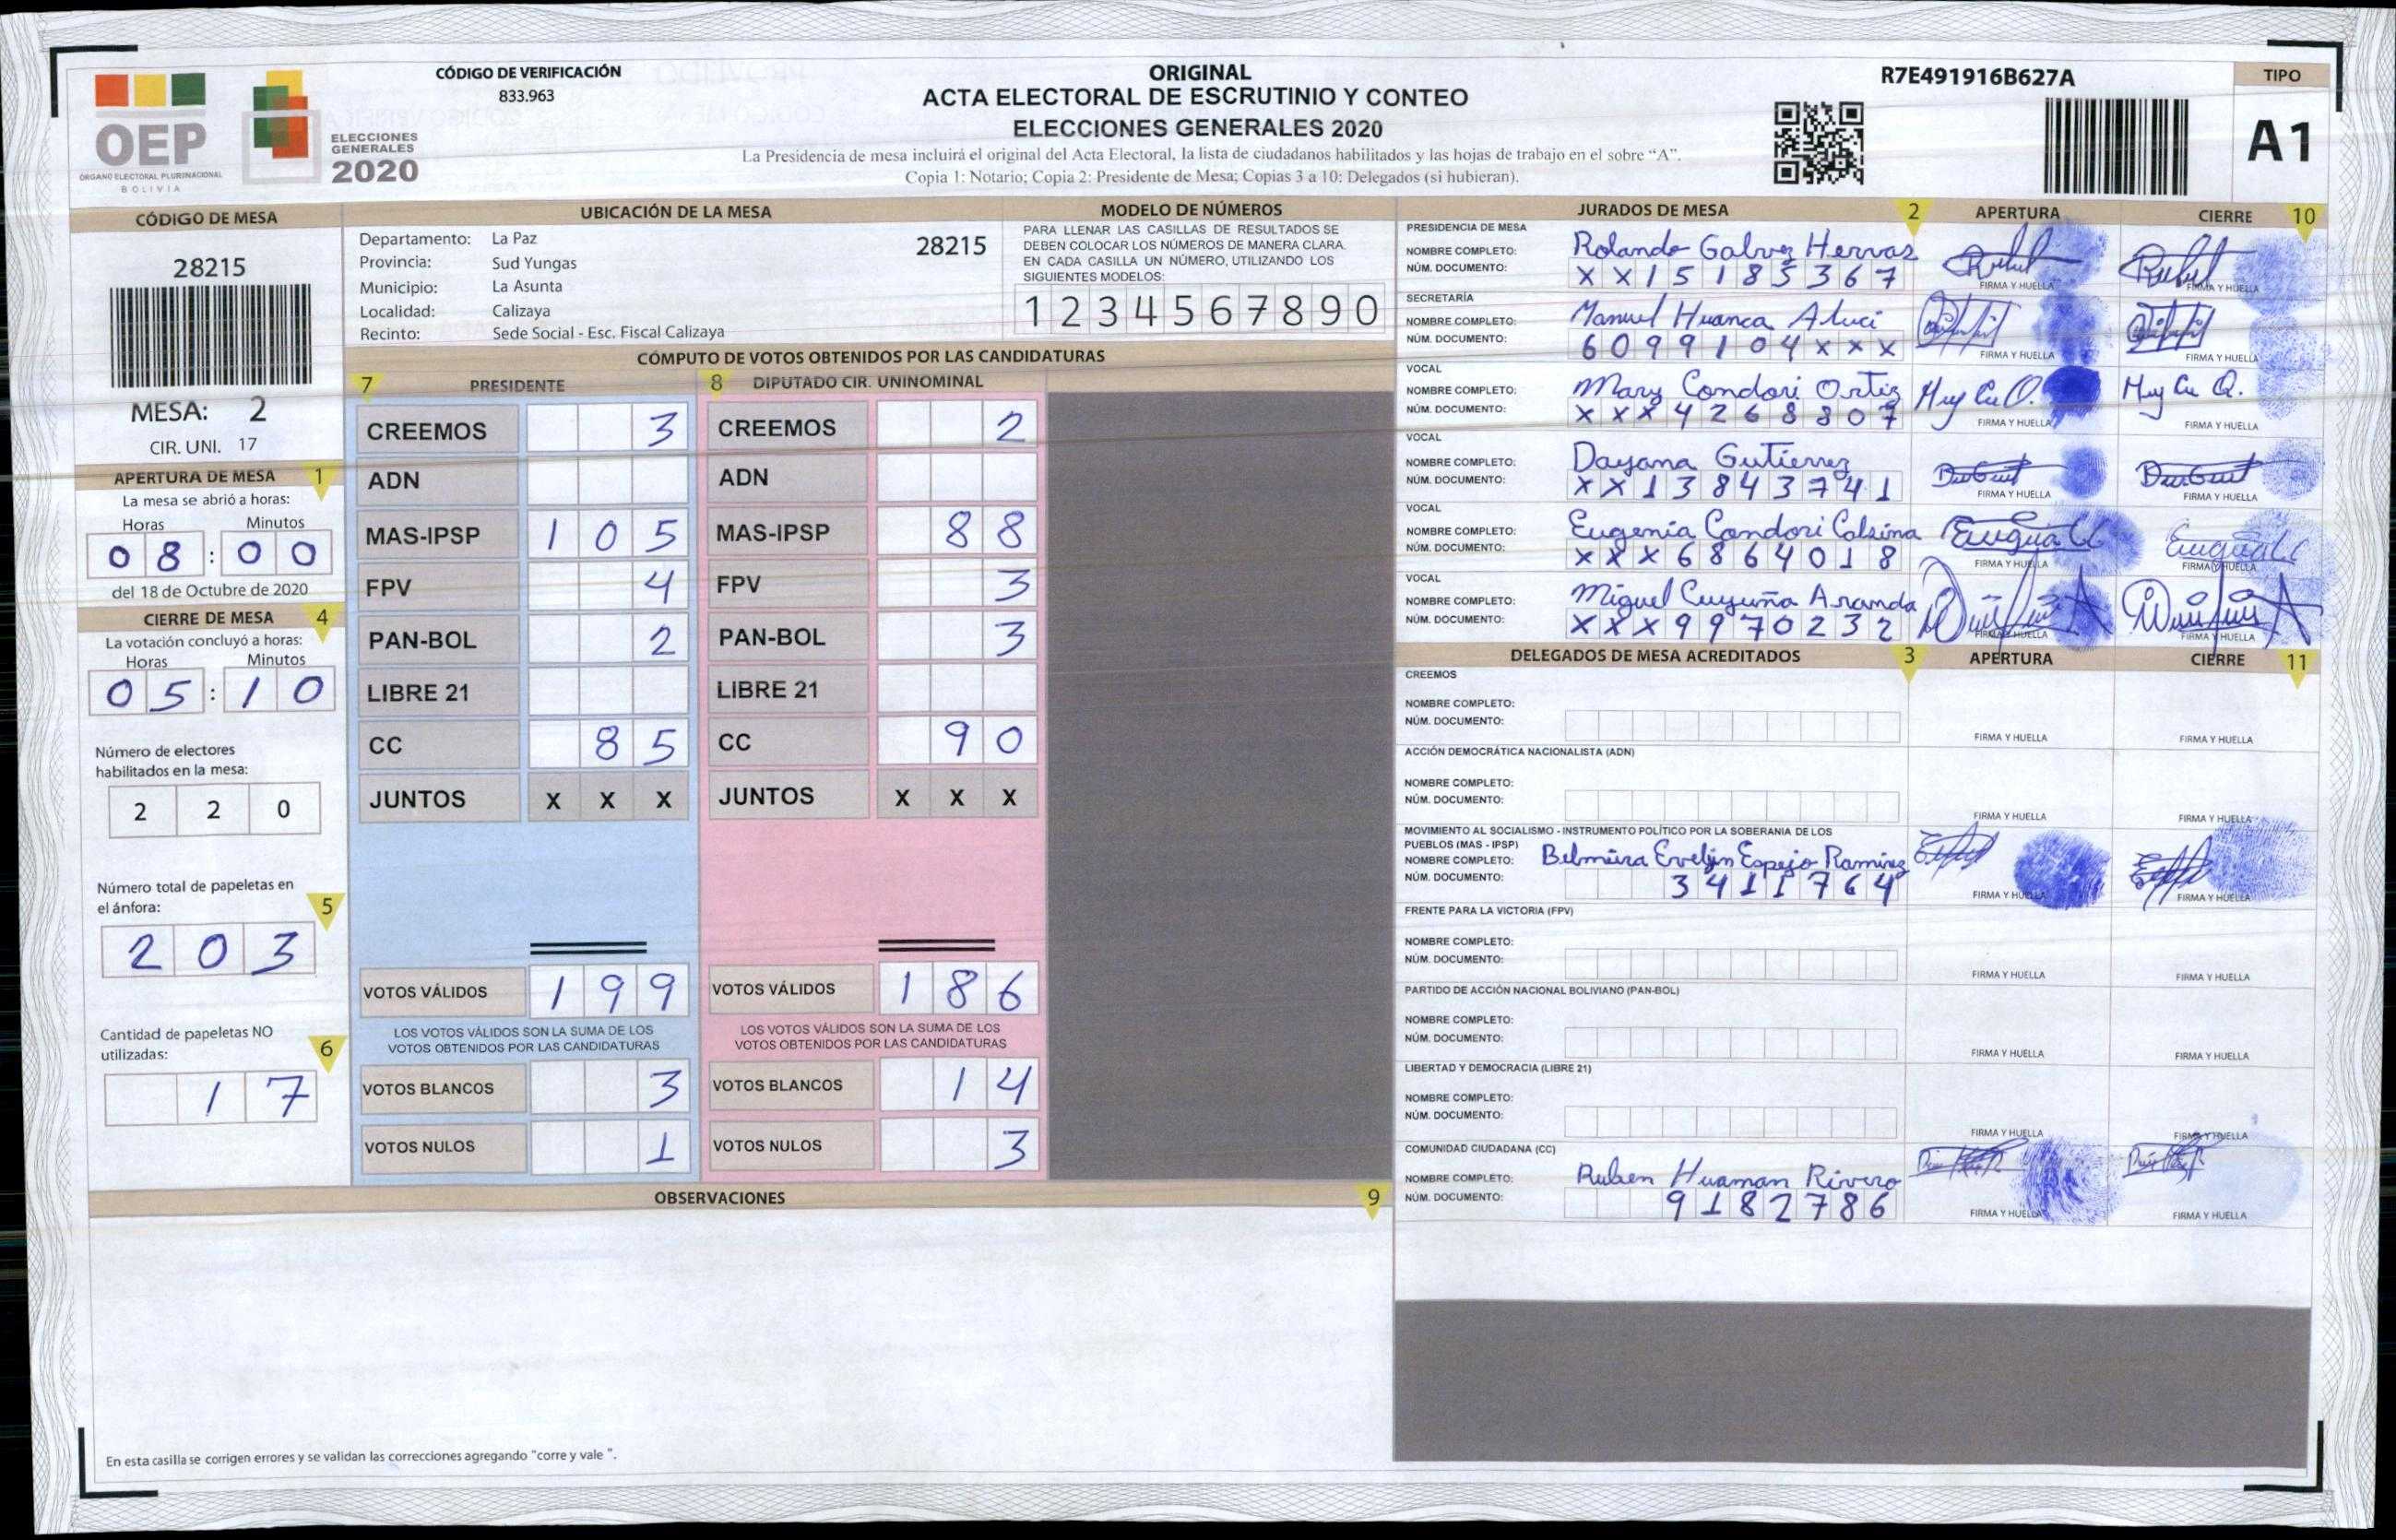 CÓDIGO DE VERIFICACIÓN
833.963
OEP
ÓRGANO ELECTORAL PLURINACIONAL
BOLIVIA
ELECCIONES
GENERALES
2020
ORIGINAL
ACTA ELECTORAL DE ESCRUTINIO Y CONTEO
ELECCIONES GENERALES 2020
La Presidencia de mesa incluirá el original del Acta Electoral, la lista de ciudadanos habilitados y las hojas de trabajo en el sobre “A”.
Copia 1: Notario; Copia 2: Presidente de Mesa; Copias 3 a 10: Delegados (si hubieran).
R7E491916B627A
TIPO
A1
CÓDIGO DE MESA
28215
MESA: 2
CIR. UNI. 17
APERTURA DE MESA 1
La mesa se abrió a horas:
Horas Minutos
08:00
del 18 de Octubre de 2020
CIERRE DE MESA 4
La votación concluyó a horas:
Horas Minutos
05:10
Número de electores
habilitados en la mesa:
2 2 0
Número total de papeletas en
el ánfora: 5
2 0 3
Cantidad de papeletas NO
utilizadas: 6
1 7
UBICACIÓN DE LA MESA
Departamento: La Paz 28215
Provincia: Sud Yungas
Municipio: La Asunta
Localidad: Calizaya
Recinto: Sede Social - Esc. Fiscal Calizaya
MODELO DE NÚMEROS
PARA LLENAR LAS CASILLAS DE RESULTADOS SE
DEBEN COLOCAR LOS NÚMEROS DE MANERA CLARA.
EN CADA CASILLA UN NÚMERO, UTILIZANDO LOS
SIGUIENTES MODELOS:
1 2 3 4 5 6 7 8 9 0
CÓMPUTO DE VOTOS OBTENIDOS POR LAS CANDIDATURAS
7 PRESIDENTE 8 DIPUTADO CIR. UNINOMINAL
CREEMOS 3 CREEMOS 2
ADN ADN
MAS-IPSP 1 0 5 MAS-IPSP 8 8
FPV 4 FPV 3
PAN-BOL 2 PAN-BOL 3
LIBRE 21 LIBRE 21
CC 8 5 CC 9 0
JUNTOS X X X JUNTOS X X X
VOTOS VÁLIDOS 1 9 9 VOTOS VÁLIDOS 1 8 6
LOS VOTOS VÁLIDOS SON LA SUMA DE LOS LOS VOTOS VÁLIDOS SON LA SUMA DE LOS
VOTOS OBTENIDOS POR LAS CANDIDATURAS VOTOS OBTENIDOS POR LAS CANDIDATURAS
VOTOS BLANCOS 3 VOTOS BLANCOS 1 4
VOTOS NULOS 1 VOTOS NULOS 3
OBSERVACIONES 9
En esta casilla se corrigen errores y se validan las correcciones agregando "corre y vale ".
JURADOS DE MESA 2 APERTURA CIERRE 10
PRESIDENCIA DE MESA
NOMBRE COMPLETO: Rolando Galvez Hervas
NÚM. DOCUMENTO: X X 1 5 1 8 5 3 6 7
FIRMA Y HUELLA FIRMA Y HUELLA
SECRETARÍA
NOMBRE COMPLETO: Manuel Huanca Aluci
NÚM. DOCUMENTO: 6 0 9 9 1 0 4 X X X
FIRMA Y HUELLA FIRMA Y HUELLA
VOCAL
NOMBRE COMPLETO: Mary Condori Ortiz
NÚM. DOCUMENTO: X X X 4 2 6 8 8 0 7
FIRMA Y HUELLA FIRMA Y HUELLA
VOCAL
NOMBRE COMPLETO: Dayana Gutierrez
NÚM. DOCUMENTO: X X 1 3 8 4 3 7 4 1
FIRMA Y HUELLA FIRMA Y HUELLA
VOCAL
NOMBRE COMPLETO: Eugenia Condori Calsina
NÚM. DOCUMENTO: X X X 6 8 6 4 0 1 8
FIRMA Y HUELLA FIRMA Y HUELLA
VOCAL
NOMBRE COMPLETO: Miguel Cuyuña Aranda
NÚM. DOCUMENTO: X X X 9 9 7 0 2 3 2
FIRMA Y HUELLA FIRMA Y HUELLA
DELEGADOS DE MESA ACREDITADOS 3 APERTURA CIERRE 11
CREEMOS
NOMBRE COMPLETO:
NÚM. DOCUMENTO:
FIRMA Y HUELLA FIRMA Y HUELLA
ACCIÓN DEMOCRÁTICA NACIONALISTA (ADN)
NOMBRE COMPLETO:
NÚM. DOCUMENTO:
FIRMA Y HUELLA FIRMA Y HUELLA
MOVIMIENTO AL SOCIALISMO - INSTRUMENTO POLÍTICO POR LA SOBERANIA DE LOS
PUEBLOS (MAS - IPSP)
NOMBRE COMPLETO: Belmeira Evelyn Espejo Ramirez
NÚM. DOCUMENTO: 3 4 1 1 7 6 4
FIRMA Y HUELLA FIRMA Y HUELLA
FRENTE PARA LA VICTORIA (FPV)
NOMBRE COMPLETO:
NÚM. DOCUMENTO:
FIRMA Y HUELLA FIRMA Y HUELLA
PARTIDO DE ACCIÓN NACIONAL BOLIVIANO (PAN-BOL)
NOMBRE COMPLETO:
NÚM. DOCUMENTO:
FIRMA Y HUELLA FIRMA Y HUELLA
LIBERTAD Y DEMOCRACIA (LIBRE 21)
NOMBRE COMPLETO:
NÚM. DOCUMENTO:
FIRMA Y HUELLA FIRMA Y HUELLA
COMUNIDAD CIUDADANA (CC)
NOMBRE COMPLETO: Ruben Huaman Rivero
NÚM. DOCUMENTO: 9 1 8 2 7 8 6
FIRMA Y HUELLA FIRMA Y HUELLA